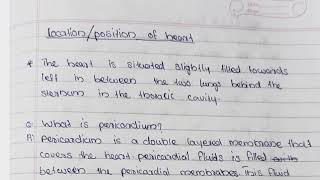 location/position of heart
* The heart is situated slightly filled towards
left in between the two lungs behind the
sternum in the thoracic cavity.
Q: What is pericardium?
A: Pericardium is a double layered membrane that
covers the heart pericardial fluids is filled
between the pericardial membranes. This fluid